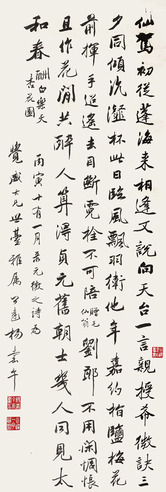 仙駕初從蓬海來相逢又說向天台一言親授希微訣三
夕同傾沆瀣杯此日臨風飄羽衛他年嘉約指鹽梅花
前揮手迢遙去目斷霓旌不可陪贈毛仙翁劉郎不用閑惆悵
且作花間共醉人算得貞元舊朝士幾人同見太
和春酬白樂天杏花園
丙寅十有一月書元微之詩為
兄世臺雅屬 楊